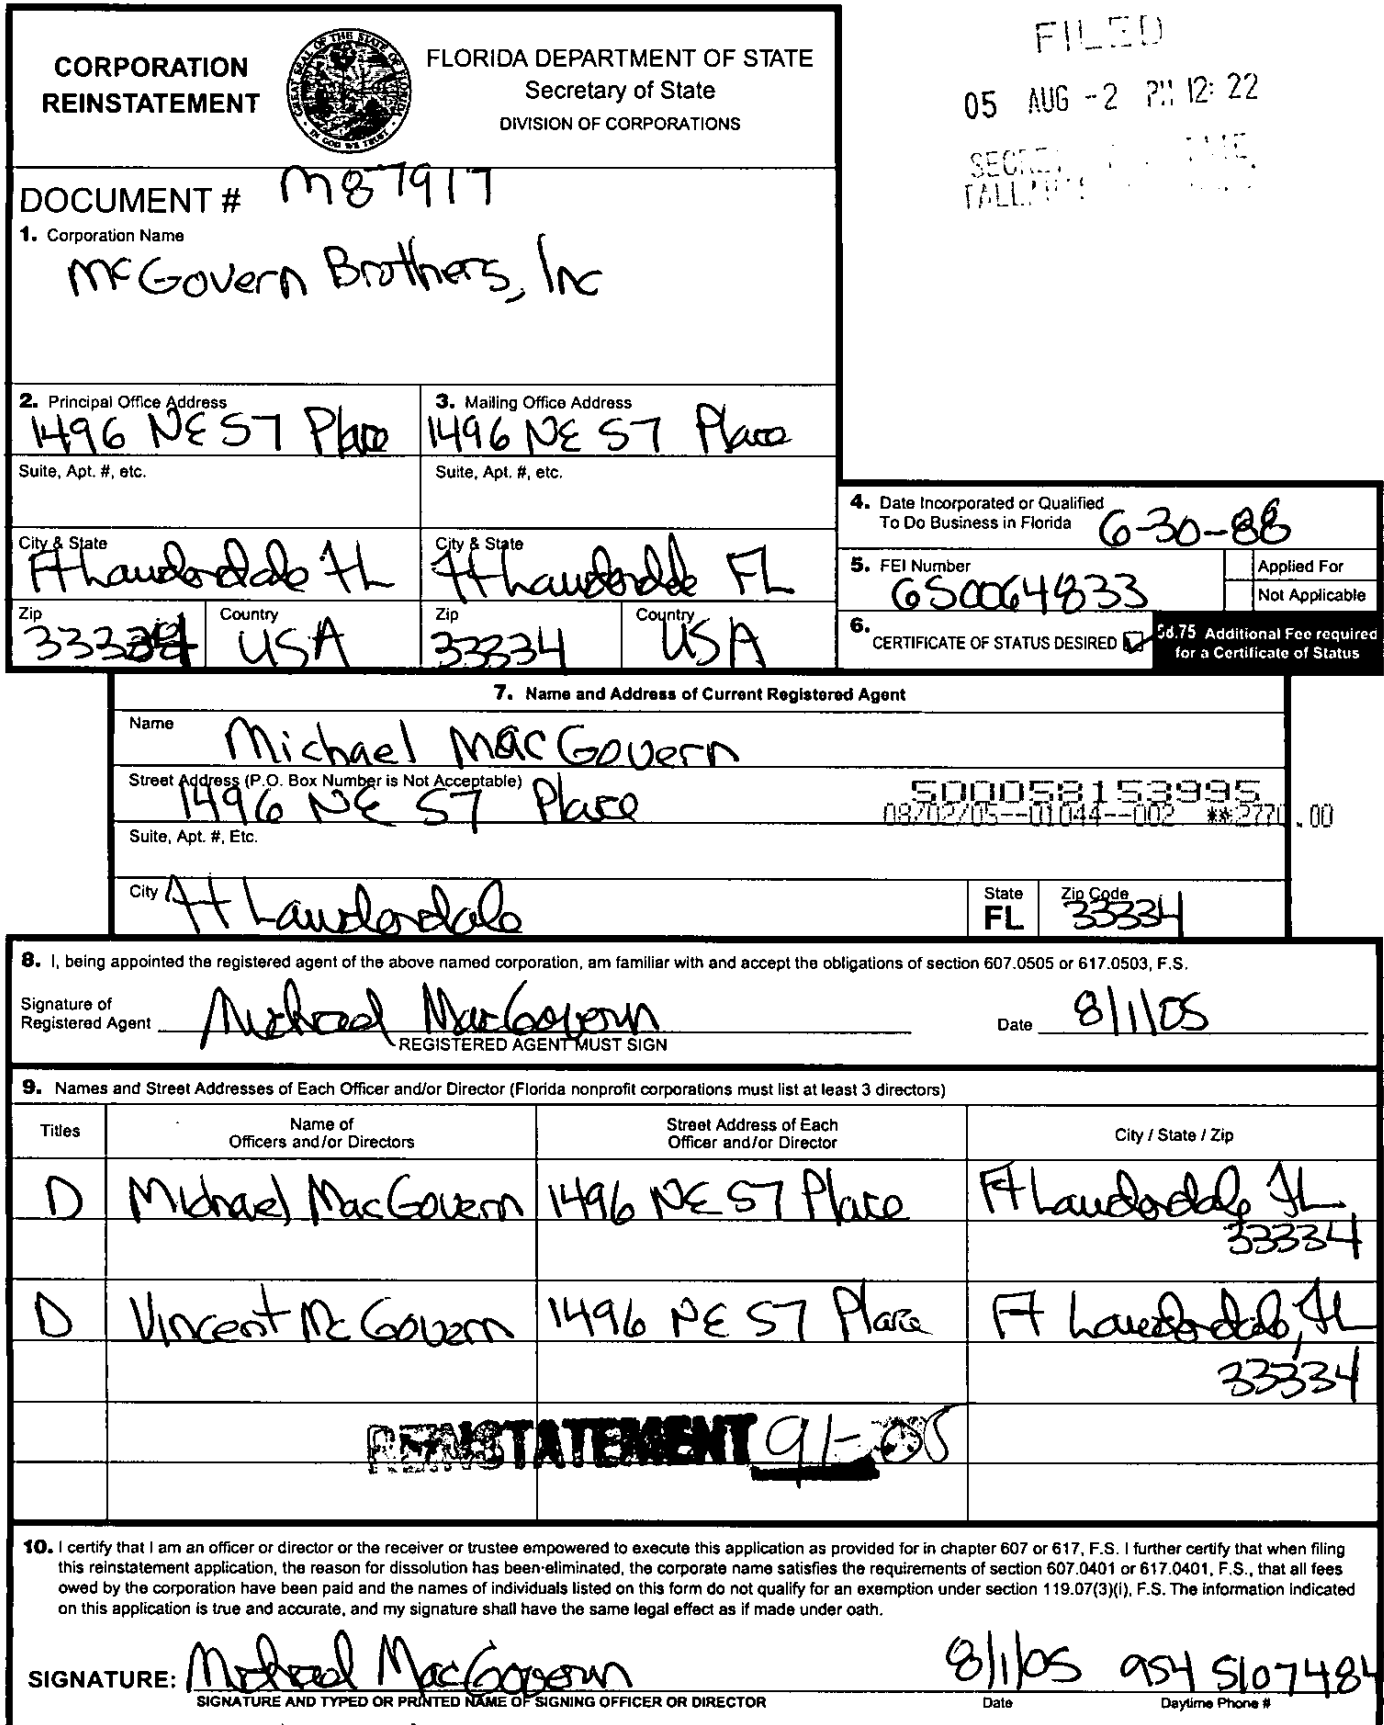 FILED
05 AUG -2 PM 12: 22
CORPORATION
REINSTATEMENT
GREAT SEAL OF THE STATE OF FLORIDA
IN GOD WE TRUST
FLORIDA DEPARTMENT OF STATE
Secretary of State
DIVISION OF CORPORATIONS
DOCUMENT # M87917
1. Corporation Name
McGovern Brothers, Inc
2. Principal Office Address
1496 NE 57 Place
3. Mailing Office Address
1496 NE 57 Place
Suite, Apt. #, etc.
Suite, Apt. #, etc.
City & State
Ft Lauderdale FL
City & State
Ft Lauderdale FL
Zip
33334
Country
USA
Zip
33334
Country
USA
4. Date Incorporated or Qualified
To Do Business in Florida 6-30-88
5. FEI Number
650064833
Applied For
Not Applicable
6. CERTIFICATE OF STATUS DESIRED
$8.75 Additional Fee required
for a Certificate of Status
7. Name and Address of Current Registered Agent
Name
Michael MacGovern
Street Address (P.O. Box Number is Not Acceptable)
1496 NE 57 Place
500058153995
08/02/05--01044--002 **2770.00
Suite, Apt. #, Etc.
City Ft Lauderdale
State
FL
Zip Code
33334
8. I, being appointed the registered agent of the above named corporation, am familiar with and accept the obligations of section 607.0505 or 617.0503, F.S.
Signature of
Registered Agent Michael MacGovern
Date 8/1/05
REGISTERED AGENT MUST SIGN
9. Names and Street Addresses of Each Officer and/or Director (Florida nonprofit corporations must list at least 3 directors)
Titles
Name of
Officers and/or Directors
Street Address of Each
Officer and/or Director
City / State / Zip
D Michael MacGovern 1496 NE 57 Place Ft Lauderdale, FL
33334
D Vincent McGovern 1496 NE 57 Place Ft Lauderdale, FL
33334
REINSTATEMENT 91-05
10. I certify that I am an officer or director or the receiver or trustee empowered to execute this application as provided for in chapter 607 or 617, F.S. I further certify that when filing
this reinstatement application, the reason for dissolution has been eliminated, the corporate name satisfies the requirements of section 607.0401 or 617.0401, F.S., that all fees
owed by the corporation have been paid and the names of individuals listed on this form do not qualify for an exemption under section 119.07(3)(i), F.S. The information indicated
on this application is true and accurate, and my signature shall have the same legal effect as if made under oath.
SIGNATURE: Michael MacGovern 8/1/05 954 5107484
SIGNATURE AND TYPED OR PRINTED NAME OF SIGNING OFFICER OR DIRECTOR
Date
Daytime Phone #